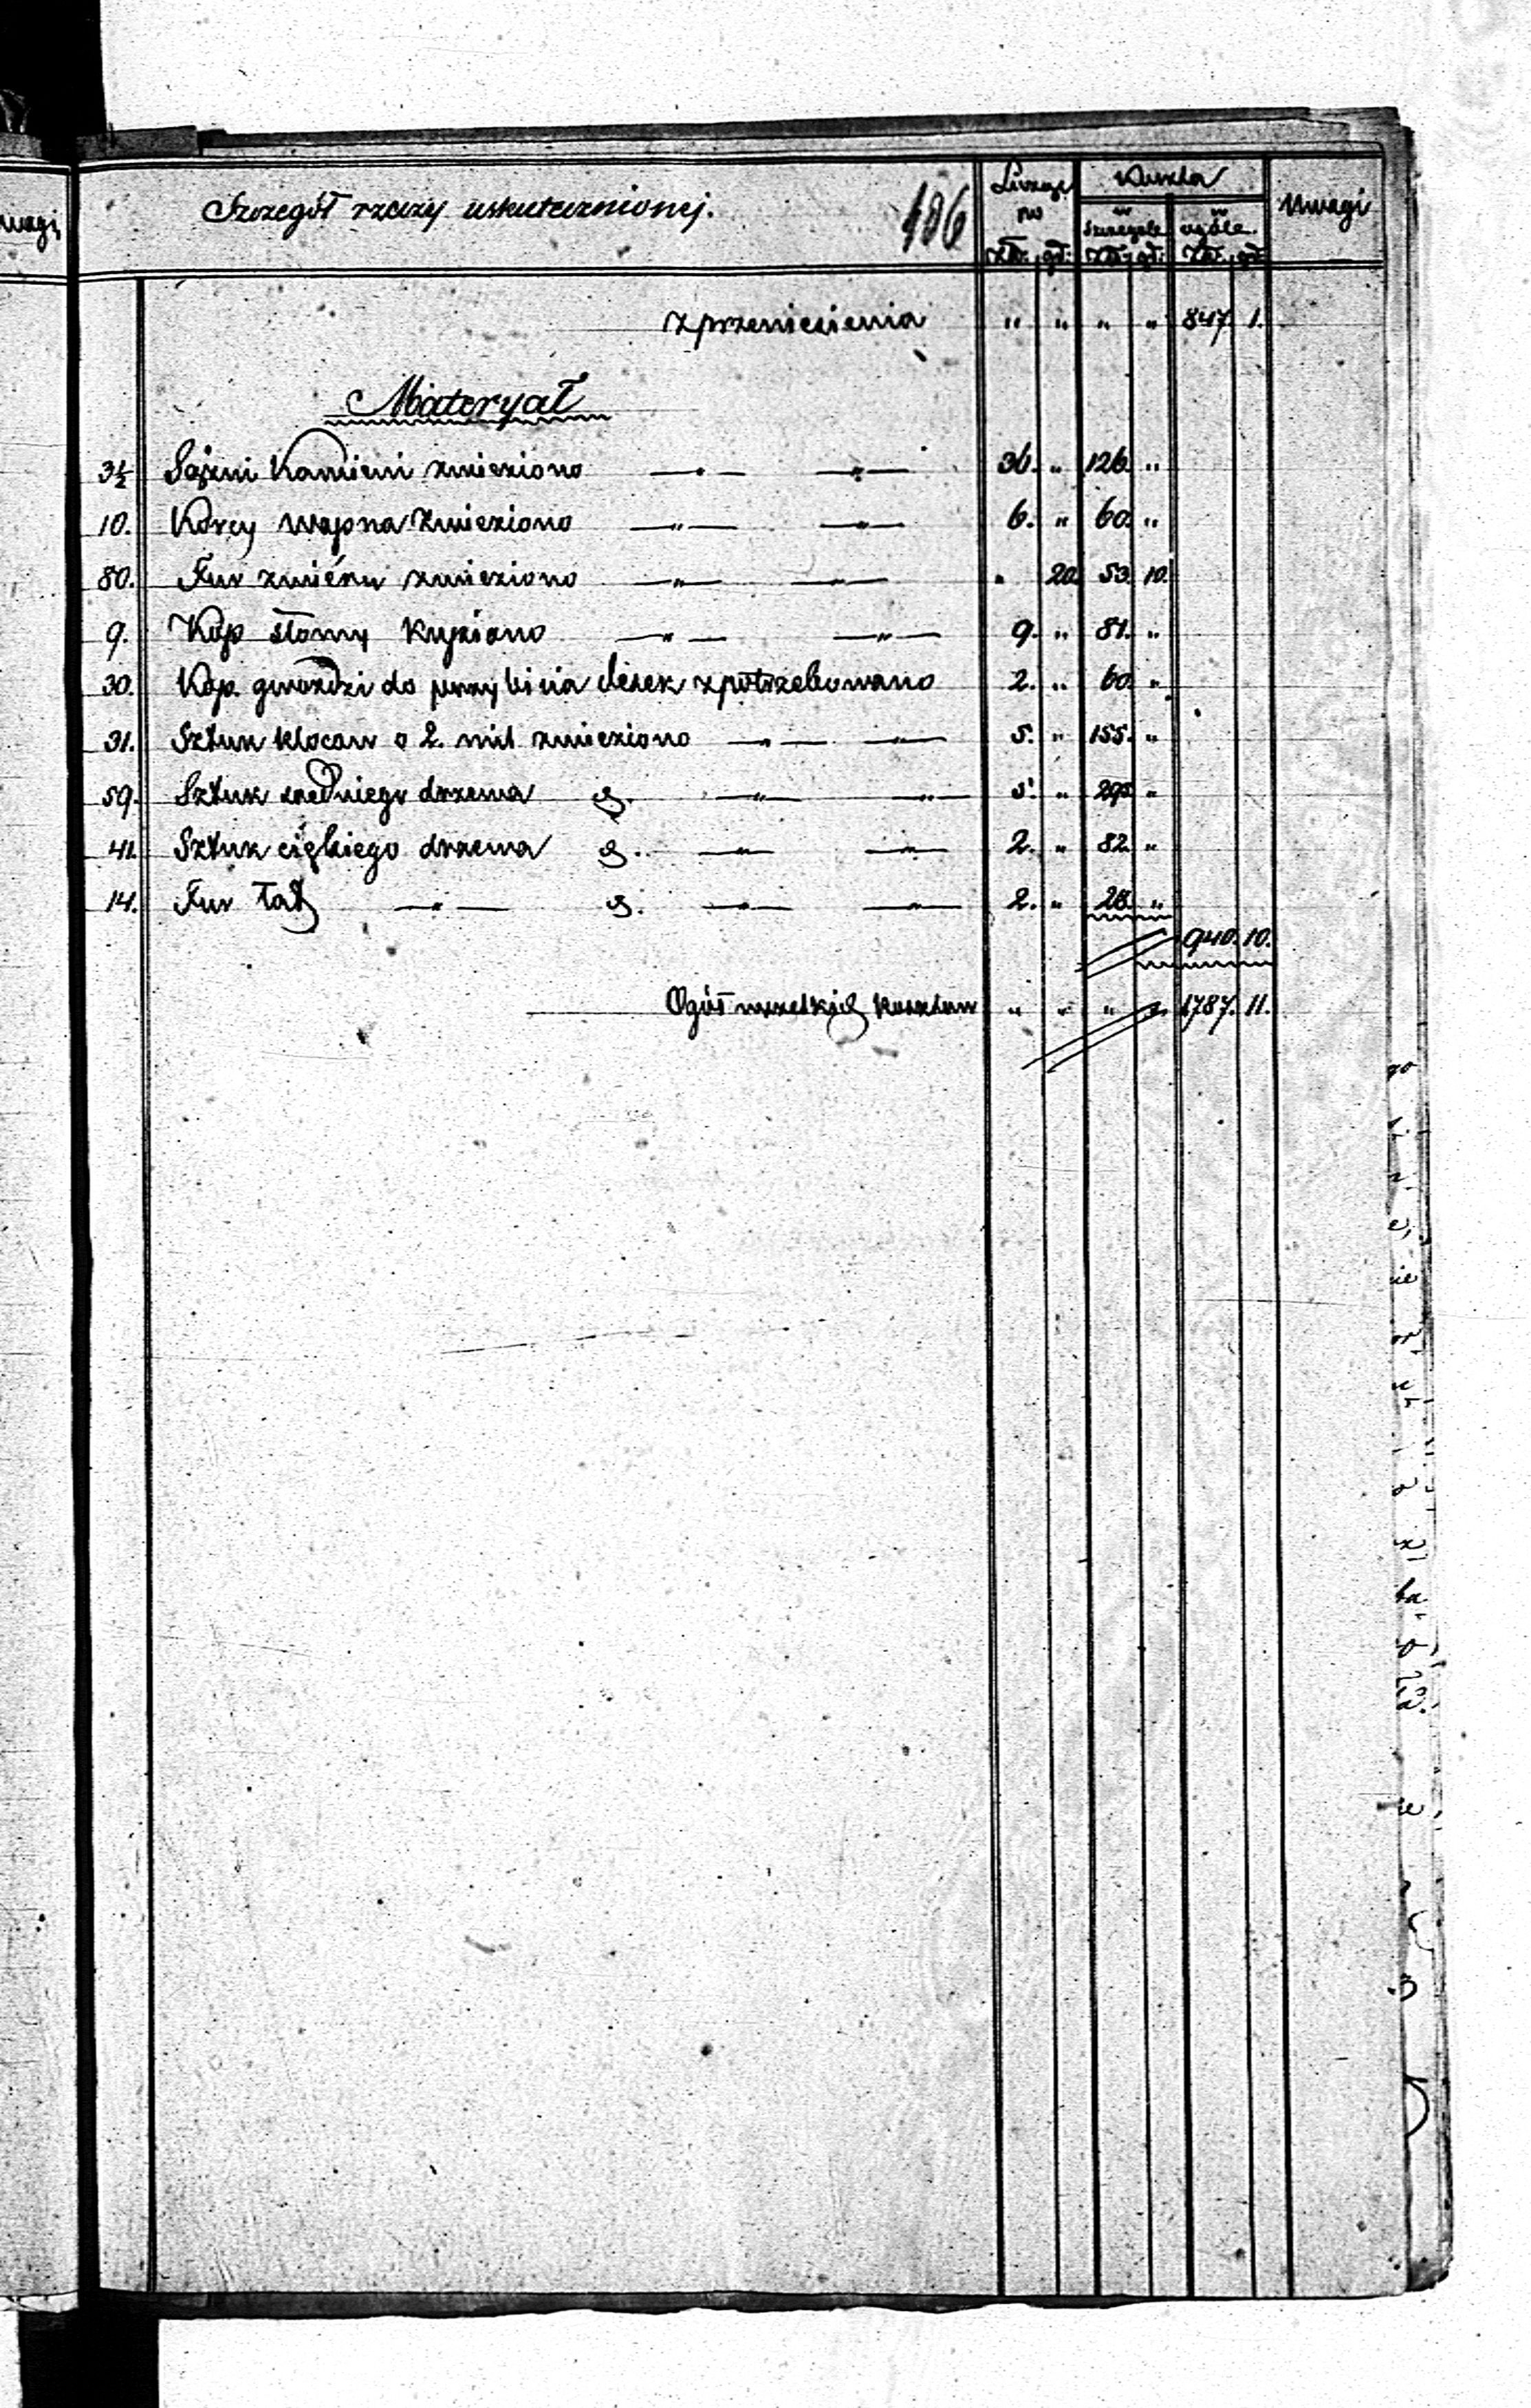 Szczegół rzeczy uskutecznionej.
Liczę w
Koszta
Uwagi
w szczególe
w ogóle.
Złł. gł: Złł. gł: Złł. gł:
z przeniesienia " " " " 847. 1.
Materyał
3½ Sążni Kamieni zwieziono —"— —"— 36. " 126. "
10. Korcy wapna zwieziono —"— —"— 6. " 60. "
80. Fur zwiéru zwieziono —"— —"— " 20. 53. 10.
9. Kop słomy kupiono —"— —"— 9. " 81. "
30. Kop gwozdzi do przybicia desek zpotrzebowano 2. " 60. "
31. Sztuk klocow o 2. mil zwieziono —"— —"— 5. " 155. "
59. Sztuk sredniego drzewa —"— —"— 5. " 295 "
41. Sztuk cięńkiego drzewa —"— —"— 2. " 82. "
14. Fur Łat —"— —"— —"— 2. " 28. "
940. 10.
Ogół wszelkich kosztow " " " " 1787. 11.